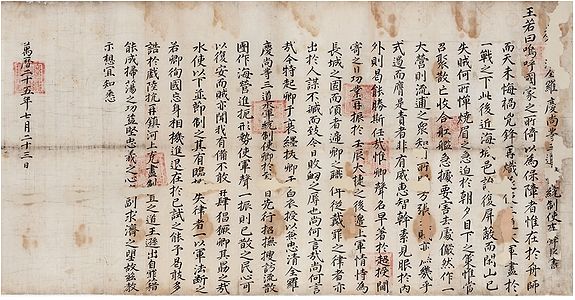 全羅慶尙等三道 統制使
王若曰嗚呼國家之所倚以爲保障者惟在於舟師
而天未悔禍兇鋒再熾 軍盡於
一戰之下此後近海城邑誰復屛蔽而閑山已
失賊何所憚燒眉之急迫於朝夕目下之策惟當
召聚散亡收合船艦急據要害去處儼然作一
大營則流逋之衆知 所 方張 亦 幾乎
式遏而膺是責者非有威惠智幹素見服於內
外則曷能勝斯任哉惟卿聲名早著於超授閫
寄之日功業再振於壬辰大捷之後邊上軍情恃爲
長城之固而頃者遞卿之職俾從戴罪之律者亦
出於人謀不臧而致今日敗衄之辱也尙何言哉尙何言
哉今特起卿于墨衰拔卿于白衣授以兼忠淸全羅
慶尙等三道水軍統制使卿於至之日先行招撫搜訪流散
團作海營進扼形勢使軍聲一振則已散之民心可
以復安而賊亦聞我有備不敢再肆猖獗卿其勖之哉
水使以下並節制之其有臨機失律者一以軍法斷之
若卿徇國忘身相機進退在於已試之能予曷敢多
誥於戲陸抗再鎭河上克盡制置之道王遜出自罪籍
能成掃蕩之功益堅忠義之心 副求濟之望故玆敎
示想宜知悉
萬曆二十五年七月二十三日